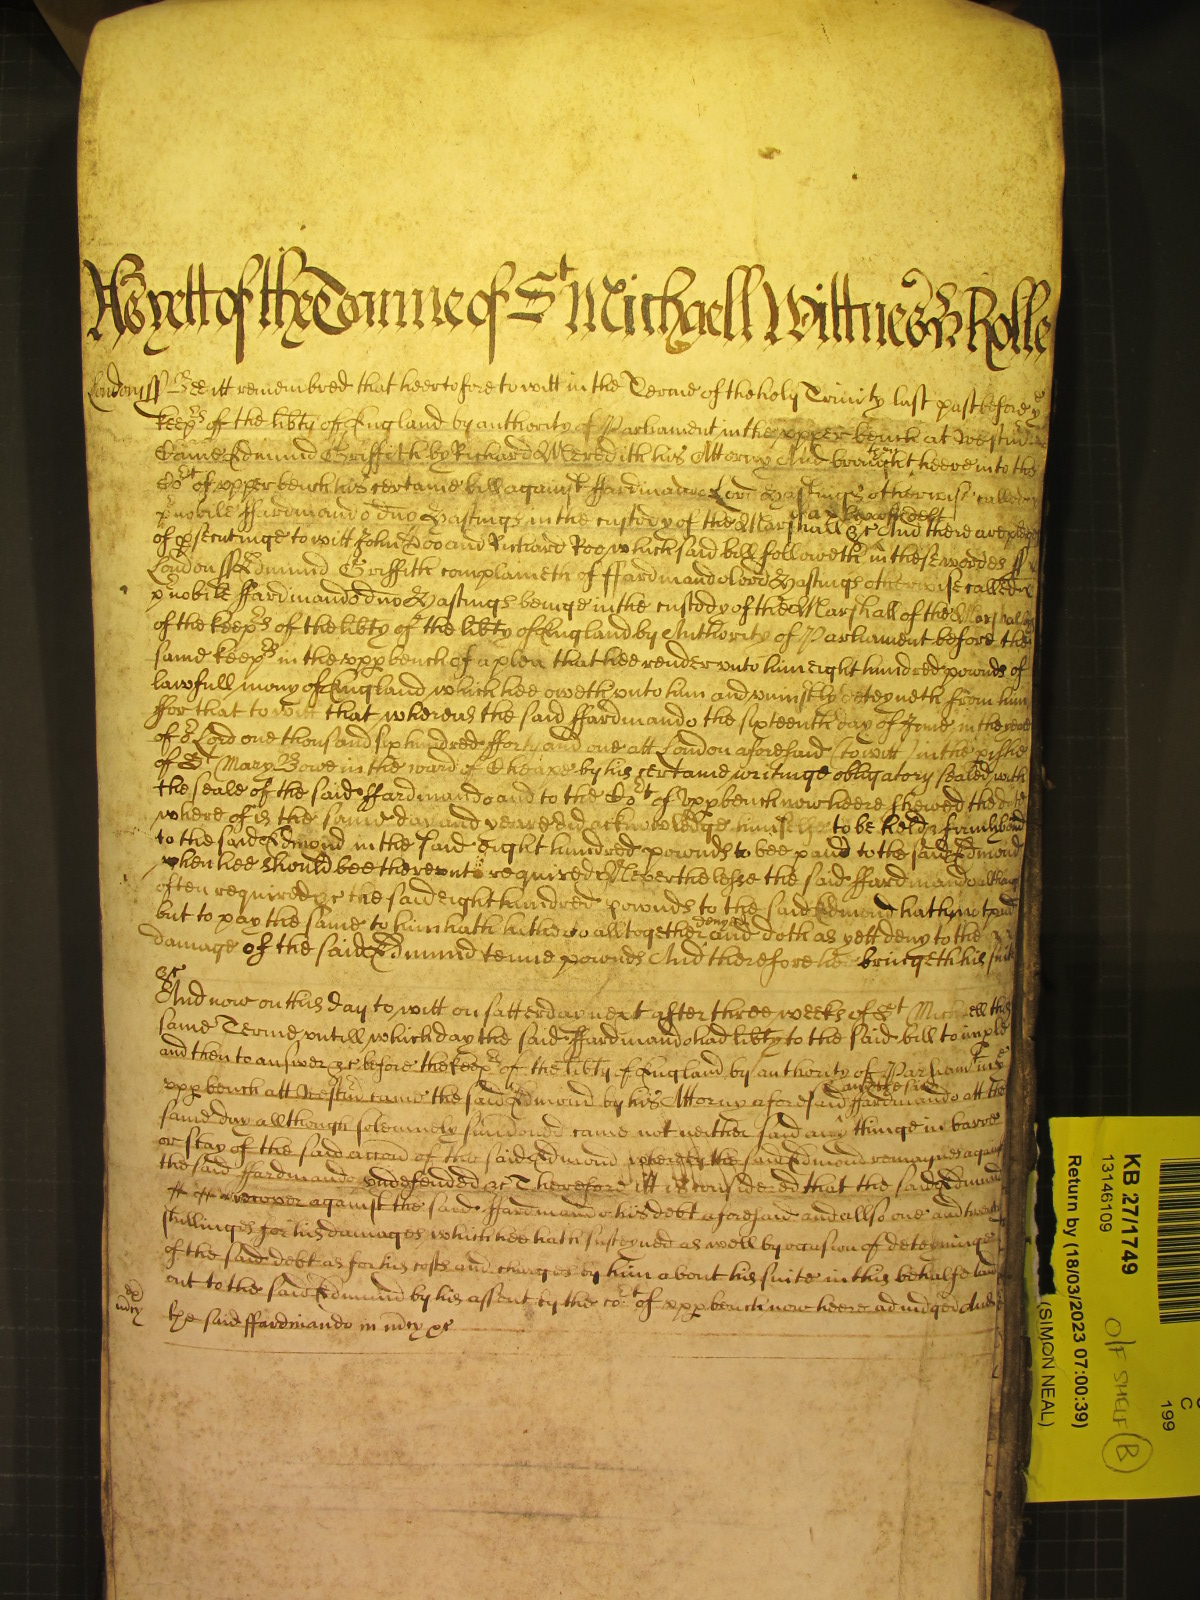 As yett of the Terme of St Michaell Wittnes H Rolle
London ss Bee itt remembred that heertofore to witt in the Terme of the holy Trinity last past before ye
keeprs of the libty of England by authority of Parliament in the upper bench at Westmr
Came Edmund Griffith by Richard Meredith his Attorny And brought heere into the
Cort of upper bench his certaine bill against ffardinando Lord Hastings otherwise called
pnobile ffardinando dno Hastings in the custody of the Marshall &c of a plea of debt And there are pledges
of psecutinge to witt John Doo and Richard Roo which said bill followeth in these wordes ss
London ss Edmund Griffith complaineth of ffardinando lord Hastings otherwise called
pnobile ffardinando dno Hastings beinge in the custody of the Marshall of the Marshalsey
of the keeprs of the libty of the libty of England by Authority of Parliament before the
same keeprs in the upp bench of a plea that hee render unto him eight hundred pownds of
lawfull mony of England which hee oweth unto him and uniustly deteyneth from him
ffor that to witt that whereas the said ffardinando the sixteenth day of June in the yeare
of or Lord one thousand six hundred fforty and one att London aforesaid (to witt) in the pishe
of St Mary Bowe in the ward of Cheape by his certaine writinge obligatory sealed with
the seale of the said ffardinando and to the Cort of upp bench now heere shewed the date
where of is the same day and yeare did acknowledge himselfe to be held & firmly bound
to the said Edmond in the said Eight hundred pownds to bee paid to the said Edmond
when hee should bee thereunto required Neverthelesse the said ffardinando although
often required &c the said eight hundred pownds to the said Edmond hath not paid
but to pay the same to him hath hitherto alltogether denyed and doth as yett deny to the
damage of the said Edmund tenne pownds And therefore hee bringeth his suite
&c
And now on this day to witt on satterday next after three weeks of St Michaell this
same Terme untill which day the said ffardinando had libty to the said bill to imple
and then to answer &c before the keeprs of the libty of England by authority of Parliamt in ye
upp bench att Westmr came the said Edmond by his Attorny aforesaid And the said ffardinando att the
same day allthough solemnely sumoned came not neither said any thinge in barre
or stay of the said accon of the said Edmond whereby the said Edmond remayned against
the said ffardinando undefended &c Therefore itt is considered that the said Edmund
recover against the said ffardinando his debt aforesaid and allso one and twenty
shillinges for his damages which hee hath susteyned as well by occasion of deteyninge
of the said debt as for his costs and charges by him about his suite in this behalfe laid
out to the said Edmund by his assent by the cort of upp bench now heere adiudged And
the said ffardinando in mcy &c
mcy
KB 27/1749
13146109
Return by (18/03/2023 07:00:39)
(SIMON NEAL)
O/F SHELF B
C
199